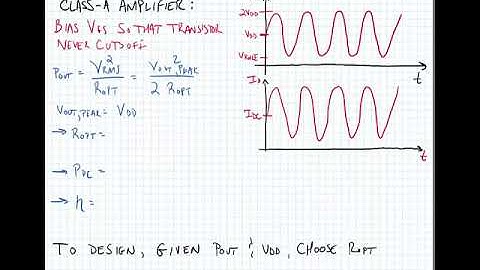 CLASS-A AMPLIFIER:
BIAS VGS SO THAT TRANSISTOR
NEVER CUTSOFF
POUT = VRMS² / ROPT = VOUT,PEAK² / 2 ROPT
VOUT,PEAK = VDD
→ ROPT =
→ PDC =
→ η =
2VDD
VDD
VKNEE
t
ID
IDC
t
TO DESIGN, GIVEN POUT & VDD, CHOOSE ROPT